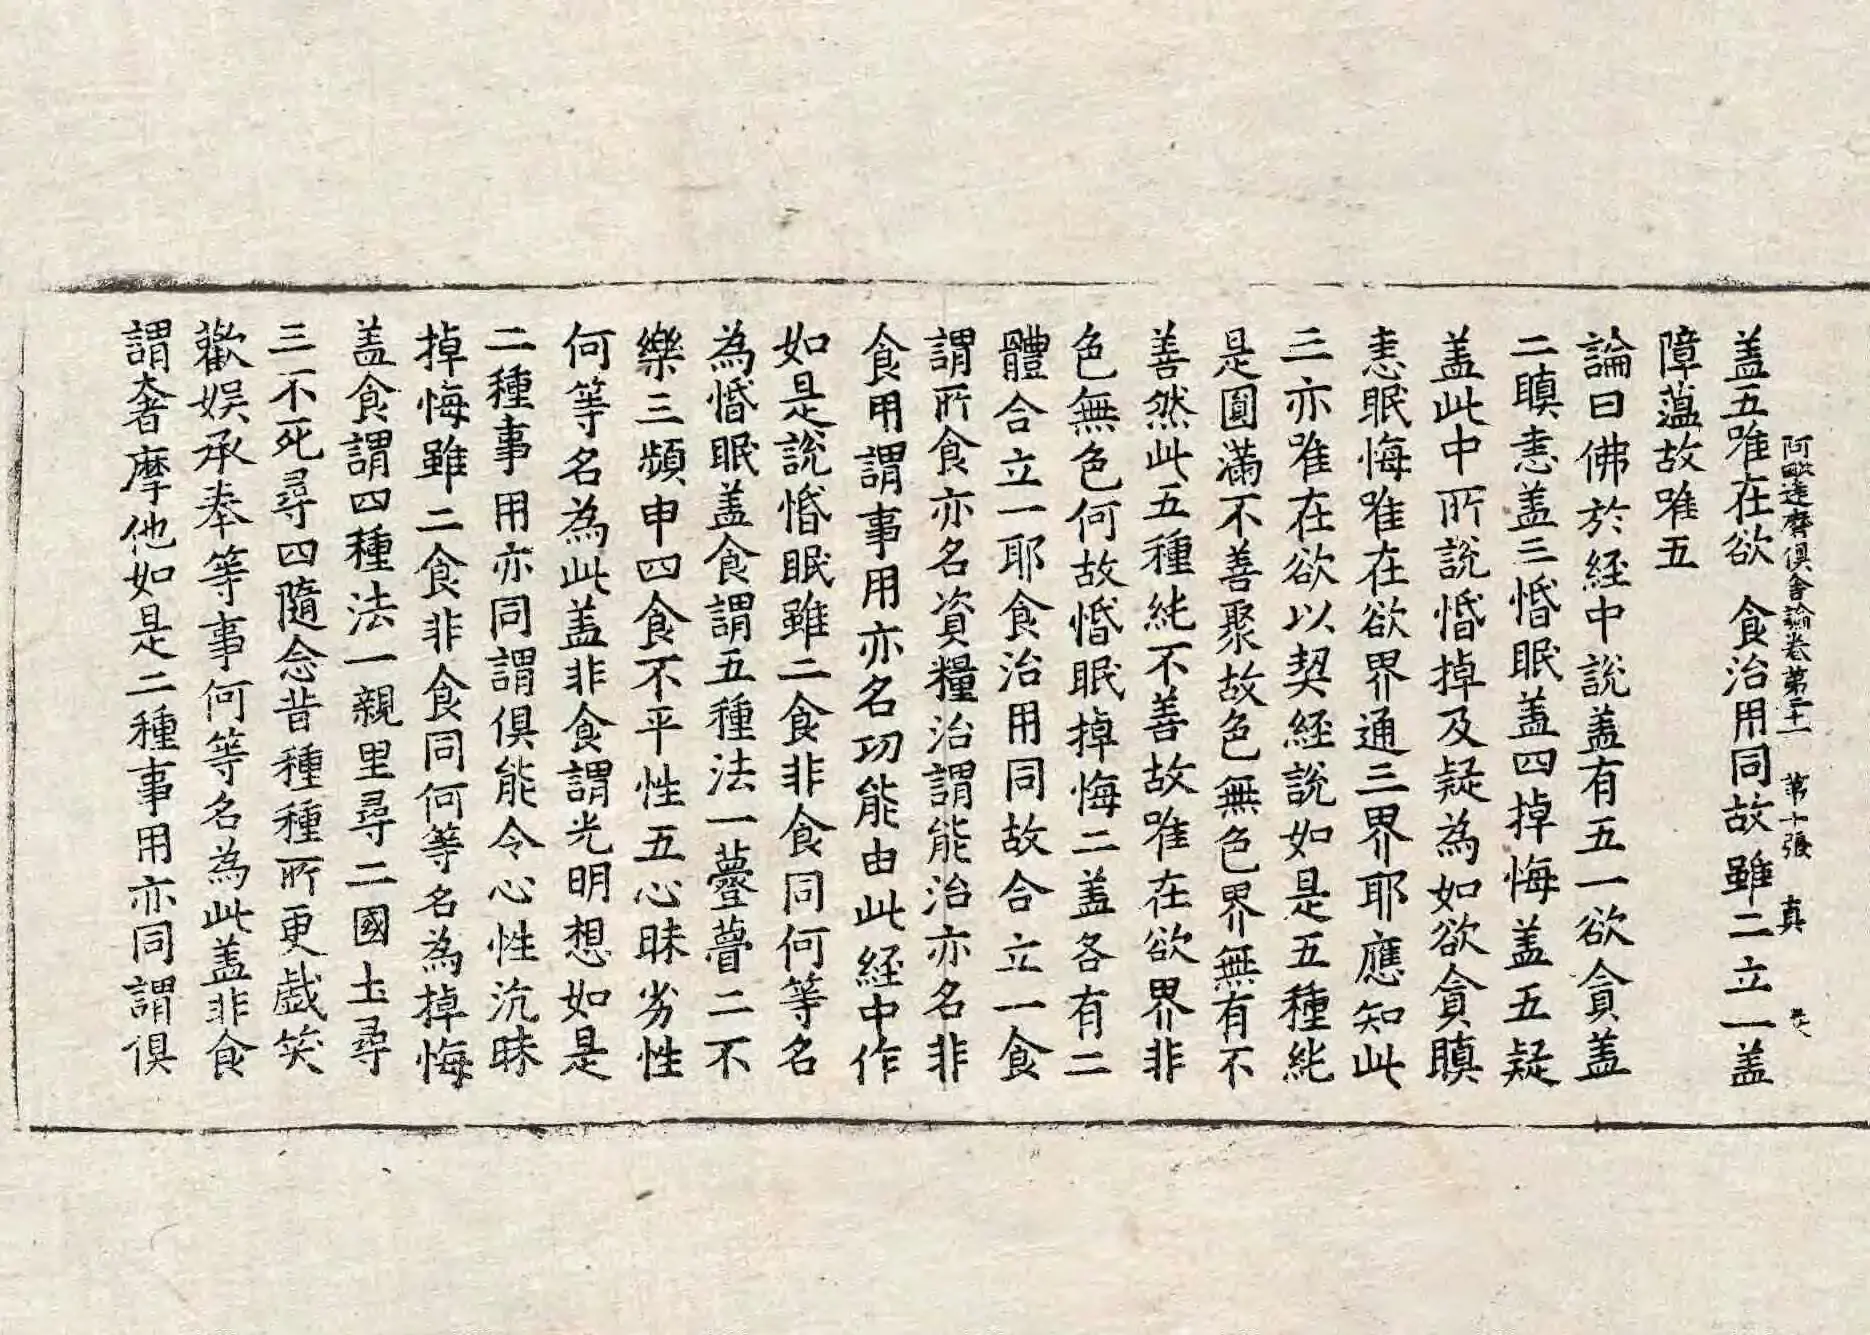 阿毗達磨俱舍論卷第二十一 第十張 真
盖五唯在欲 食治用同故 雖二立一盖
障蘊故唯五
論曰佛於経中說盖有五一欲貪盖
二瞋恚盖三惛眠盖四掉悔盖五疑
盖此中所說惛掉及疑為如欲貪瞋
恚眠悔唯在欲界通三界耶應知此
三亦唯在欲以契経說如是五種純
是圎滿不善聚故色無色界無有不
善然此五種純不善故唯在欲界非
色無色何故惛眠掉悔二盖各有二
體合立一耶食治用同故合立一食
謂所食亦名資糧治謂能治亦名非
食用謂事用亦名功能由此経中作
如是說惛眠雖二食非食同何等名
為惛眠盖食謂五種法一薹瞢二不
樂三頻申四食不平性五心昧劣性
何等名為此盖非食謂光明想如是
二種事用亦同謂俱能令心性沉昧
掉悔雖二食非食同何等名為掉悔
盖食謂四種法一親里尋二國土尋
三不死尋四隨念昔種種所更戲笑
歡娛承奉等事何等名為此盖非食
謂奢摩他如是二種事用亦同謂俱